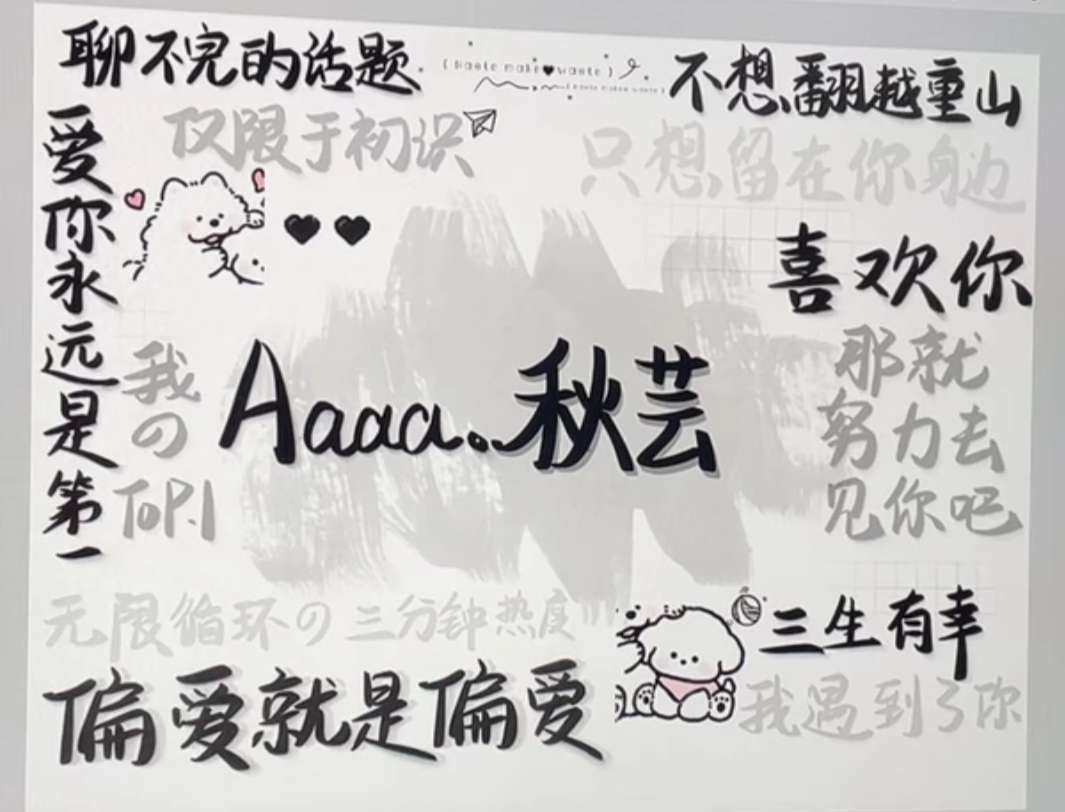 聊不完的话题
不想翻越重山
仅限于初识
只想留在你身边
爱你永远是第一
喜欢你
我の
TOP.1
Aaaa.秋芸
那就
努力去
见你吧
无限循环の三分钟热度
三生有幸
偏爱就是偏爱
我遇到了你